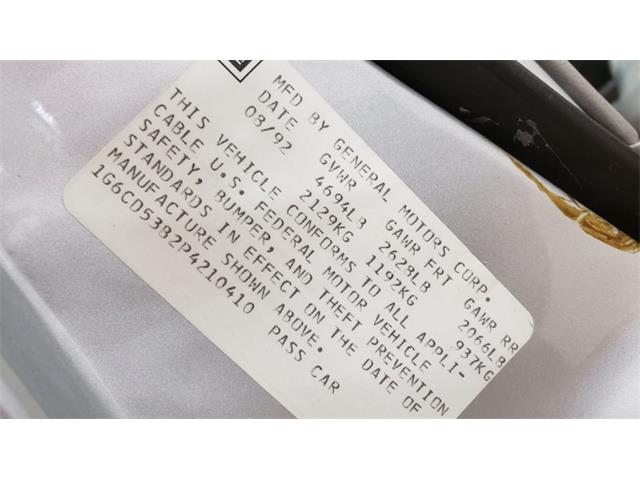 MFD BY GENERAL MOTORS CORP.
DATE GVWR GAWR FRT GAWR RR
08/92 4694LB 2628LB 2066LB
2129KG 1192KG 937KG
THIS VEHICLE CONFORMS TO ALL APPLI-
CABLE U.S. FEDERAL MOTOR VEHICLE
SAFETY, BUMPER, AND THEFT PREVENTION
STANDARDS IN EFFECT ON THE DATE OF
MANUFACTURE SHOWN ABOVE.
1G6CD53B2P4210410 PASS CAR